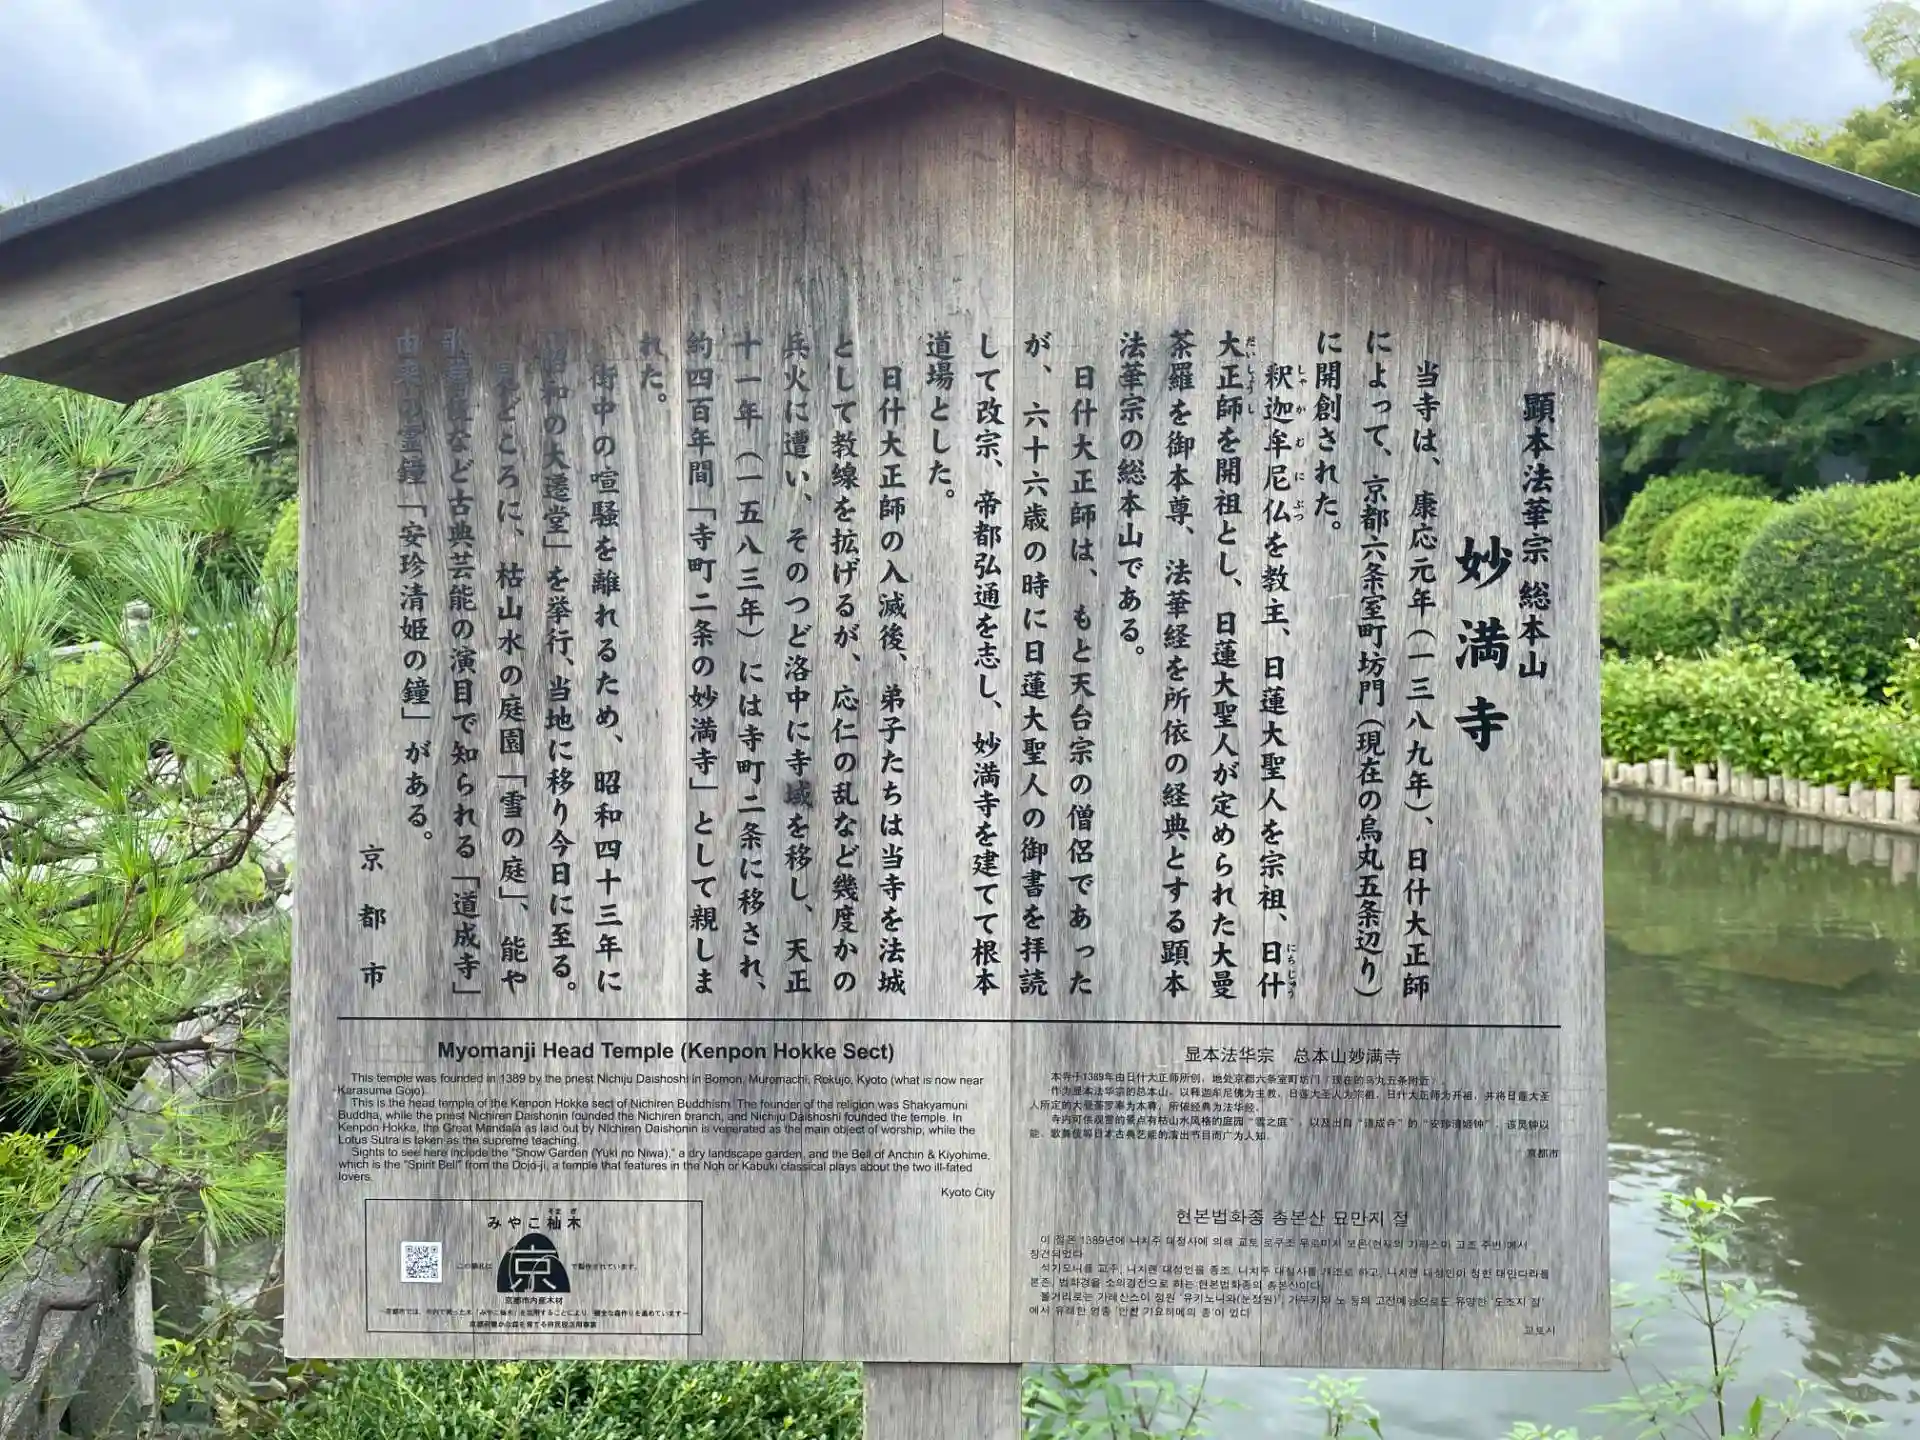 顕本法華宗 総本山
妙満寺
当寺は、康応元年(一三八九年)、日什大正師
によって、京都六条室町坊門(現在の烏丸五条辺り)
に開創された。
釈迦牟尼仏を教主、日蓮大聖人を宗祖、日什
しゃかむにぶつ
にちじゅう
大正師を開祖とし、日蓮大聖人が定められた大曼
だいしょうし
荼羅を御本尊、法華経を所依の経典とする顕本
法華宗の総本山である。
日什大正師は、もと天台宗の僧侶であった
が、六十六歳の時に日蓮大聖人の御書を拝読
して改宗、帝都弘通を志し、妙満寺を建てて根本
道場とした。
日什大正師の入滅後、弟子たちは当寺を法城
として教線を拡げるが、応仁の乱など幾度かの
兵火に遭い、そのつど洛中に寺域を移し、天正
十一年(一五八三年)には寺町二条に移され、
約四百年間「寺町二条の妙満寺」として親しま
れた。
街中の喧騒を離れるため、昭和四十三年に
「昭和の大遷堂」を挙行、当地に移り今日に至る。
見どころに、枯山水の庭園「雪の庭」、能や
歌舞伎など古典芸能の演目で知られる「道成寺」
由来の霊鐘「安珍清姫の鐘」がある。
京都市
Myomanji Head Temple (Kenpon Hokke Sect)
This temple was founded in 1389 by the priest Nichiju Daishoshi in Bomon, Muromachi, Rokujo, Kyoto (what is now near
Karasuma Gojo).
This is the head temple of the Kenpon Hokke sect of Nichiren Buddhism. The founder of the religion was Shakyamuni
Buddha, while the priest Nichiren Daishonin founded the Nichiren branch, and Nichiju Daishoshi founded the temple. In
Kenpon Hokke, the Great Mandala as laid out by Nichiren Daishonin is venerated as the main object of worship, while the
Lotus Sutra is taken as the supreme teaching.
Sights to see here include the "Snow Garden (Yuki no Niwa)," a dry landscape garden, and the Bell of Anchin & Kiyohime,
which is the "Spirit Bell" from the Dojo-ji, a temple that features in the Noh or Kabuki classical plays about the two ill-fated
lovers.
Kyoto City
みやこ杣木
そまぎ
この駒札は
京
で製作されています。
京都市内産木材
京都府豊かな森を育てる府民税活用事業
显本法华宗 总本山妙满寺
本寺于1389年由日什大正师所创,地处京都六条室町坊门(现在的乌丸五条附近)。
作为显本法华宗的总本山,以释迦牟尼佛为主教,日莲大圣人为宗祖,日什大正师为开祖,并将日莲大圣
人所定的大曼荼罗奉为本尊,所依经典为法华经。
寺内可供观赏的景点有枯山水风格的庭园"雪之庭",以及出自"道成寺"的"安珍清姬钟",该灵钟以
能、歌舞伎等日本古典艺能的演出节目而广为人知。
京都市
현본법화종 총본산 묘만지 절
이 절은 1389년에 니치주 대정사에 의해 교토 로쿠조 무로마치 보몬(현재의 가라스마 고조 주변)에서
창건되었다.
석가모니를 교주, 니치렌 대성인을 종조, 니치주 대정사를 개조로 하고, 니치렌 대성인이 정한 대만다라를
본존, 법화경을 소의경전으로 하는 현본법화종의 총본산이다.
볼거리로는 가레산스이 정원 '유키노니와(눈정원)', 가부키와 노 등의 고전예능으로도 유명한 '도조지 절'
에서 유래한 영종 '안친 기요히메의 종'이 있다.
교토시